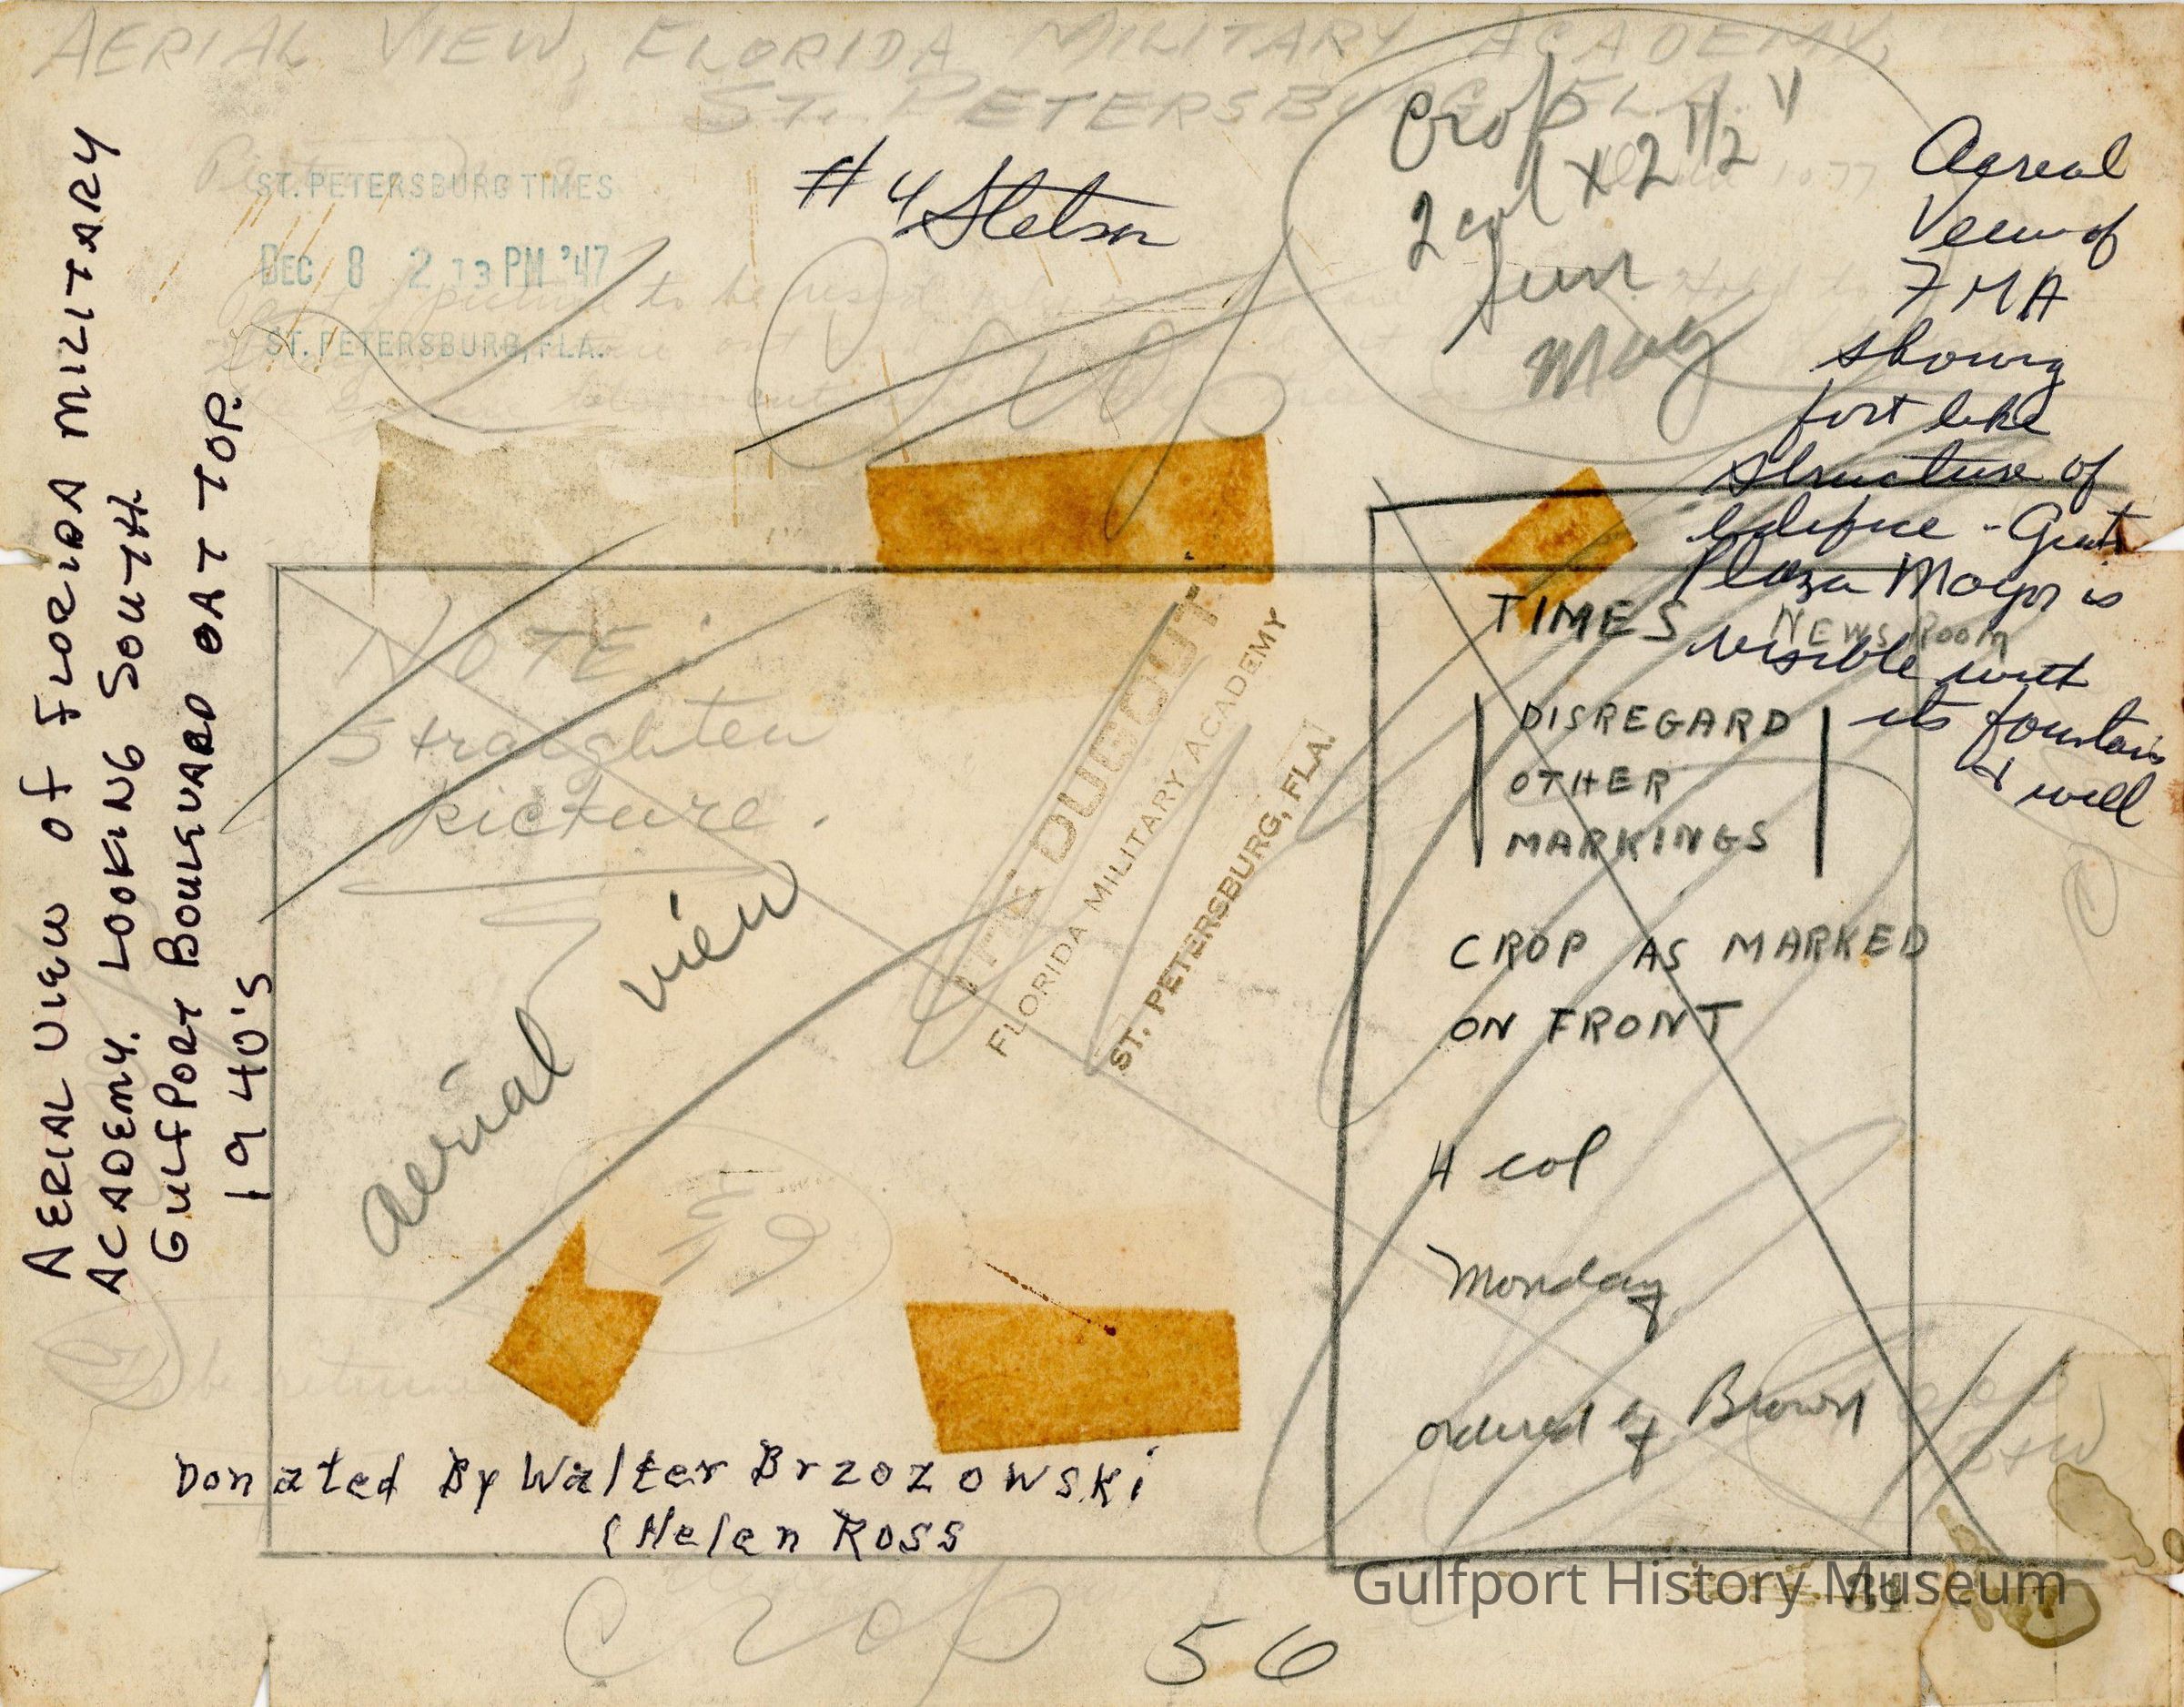 AERIAL VIEW, FLORIDA MILITARY ACADEMY,
ST. PETERSBURG, FLA.
ST. PETERSBURG TIMES
DEC 8 2 13 PM '47
ST. PETERSBURG, FLA.
# 4 Stetson
Crop
2 col x 2 1/2 "
Sun
May
Aereal
View of
FMA
showing
fort like
structure of
edifice - Great
Plaza Mayor is
visible with
its fountain
& well
AERIAL VIEW OF FLORIDA MILITARY
ACADEMY. LOOKING SOUTH.
GULFPORT BOULEVARD AT TOP.
1940'S
Crop
picture to be used
NOTE:
Straighten
picture.
aerial view
THE DUGOUT
FLORIDA MILITARY ACADEMY
ST. PETERSBURG, FLA.
TIMES NEWS ROOM
DISREGARD
OTHER
MARKINGS
CROP AS MARKED
ON FRONT
4 col
Monday
ordered by Brown
Donated By Walter Brzozowski
(Helen Ross
Crop
56
Gulfport History Museum